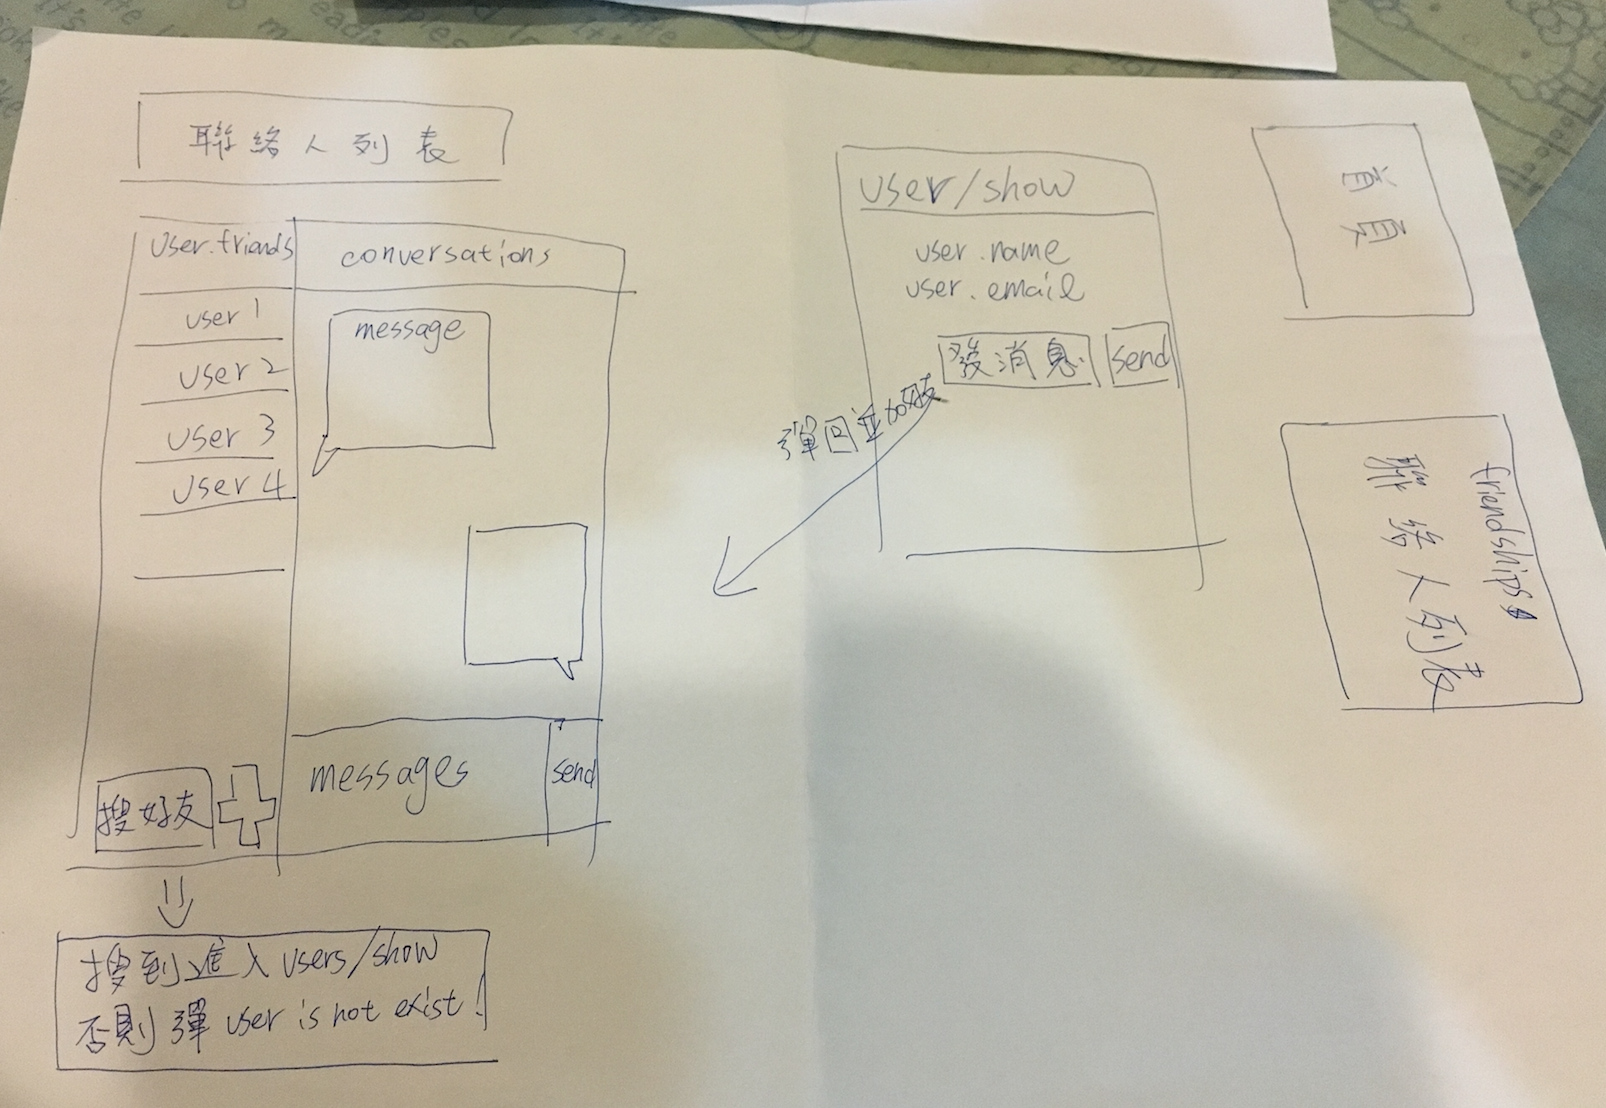 聯絡人列表
user.friends
conversations
user 1
user 2
user 3
user 4
message
搜好友
messages
send
搜到進入 users/show
否則彈 user is not exist!
user/show
user.name
user.email
發消息
send
彈回並加好友
首頁
friendships
聯絡人列表